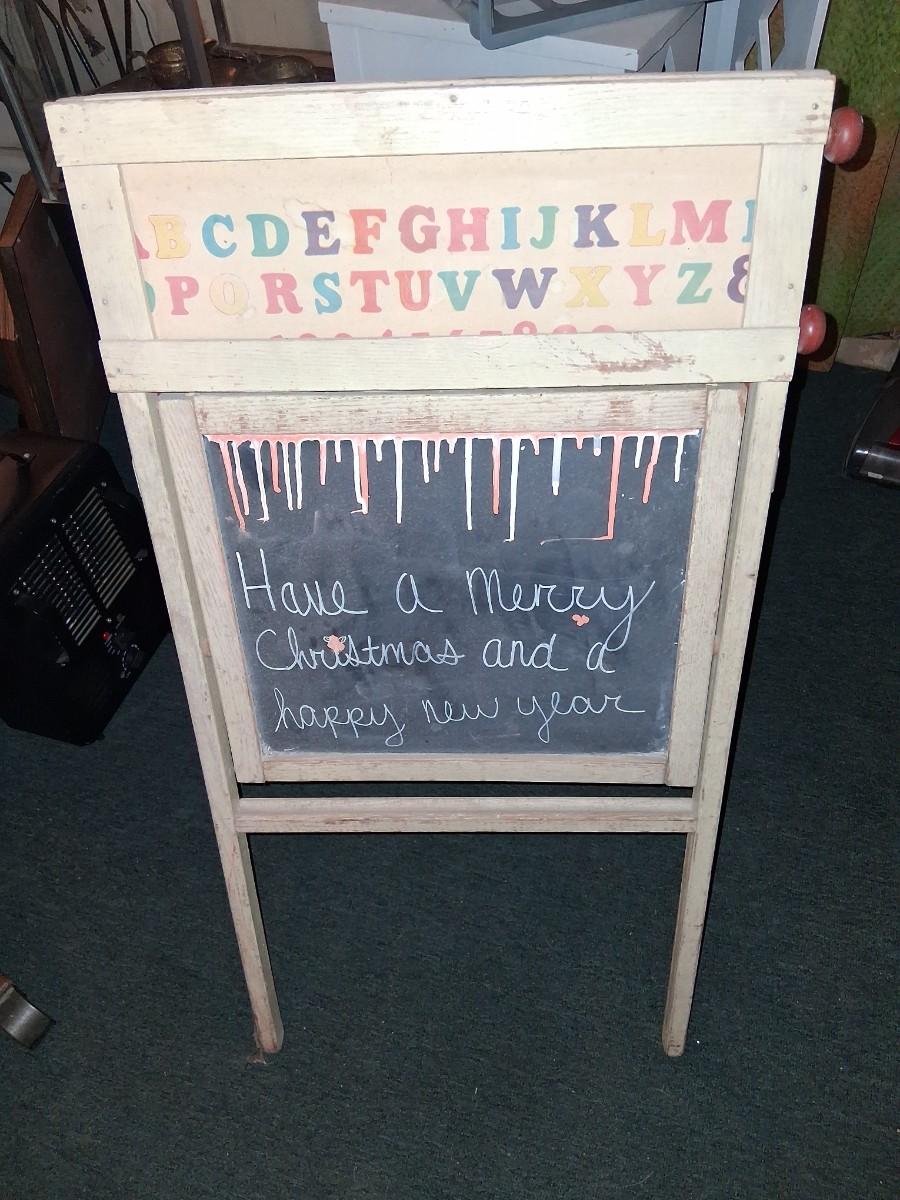 ABCDEFGHIJKLM
PQRSTUVWXYZ&
Have a Merry
Christmas and a
happy new year